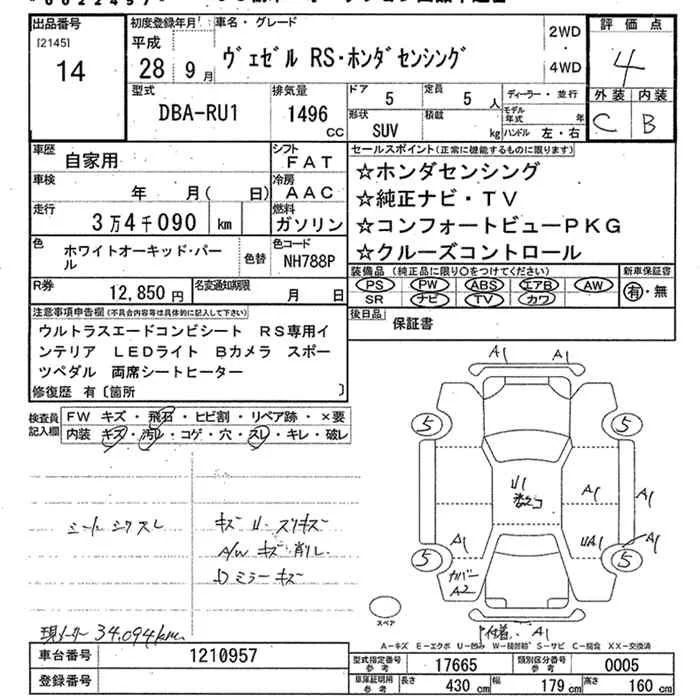 出品番号
[2145]
14
初度登録年月
平成
28 9月
車名・グレード
ヴェゼル RS・ホンダセンシング
2WD
・
4WD
評価点
4
外装 内装
C B
型式
DBA-RU1
排気量
1496
CC
ドア
5
定員
5 人
形状
SUV
積載
kg
ディーラー・並行
モデル年式 年
ハンドル 左・右
車歴
自家用
シフト
FAT
車検
年 月( 日)
冷房
AAC
走行
3万4千090 km
燃料
ガソリン
色
ホワイトオーキッド・パール
色替
色コード
NH788P
R券
12,850円
名変通知期限
月 日
セールスポイント(正常に機能するものに限ります)
☆ホンダセンシング
☆純正ナビ・TV
☆コンフォートビューPKG
☆クルーズコントロール
装備品(純正品に限り○をつけてください)
PS PW ABS エアB AW
SR ナビ TV カワ
新車保証書
有・無
後日品
保証書
注意事項申告欄(不具合内容等は具体的に記入して下さい)
ウルトラスエードコンビシート RS専用イ
ンテリア LEDライト Bカメラ スポー
ツペダル 両席シートヒーター
修復歴 有〔箇所 〕
検査員記入欄
FW キズ・飛石・ヒビ割・リペア跡・×要
内装 キズ・汚レ・コゲ・穴・スレ・キレ・破レ
キズ U スリキズ
A/W キズ 削レ
ミラーキズ
現メーター 34,094km
A1 A1
5 5
U1
A1
A1
A1
UA1
A1
5 5
カバー
A2
A1
スペア
A-キズ E-エクボ U-凹み
S-サビ C-腐食 XX-交換済
車台番号
1210957
登録番号
型式指定番号 参考
17665
類別区分番号 参考
0005
車庫証明用 参考
長さ 430 cm
幅 179 cm
高さ 160 cm